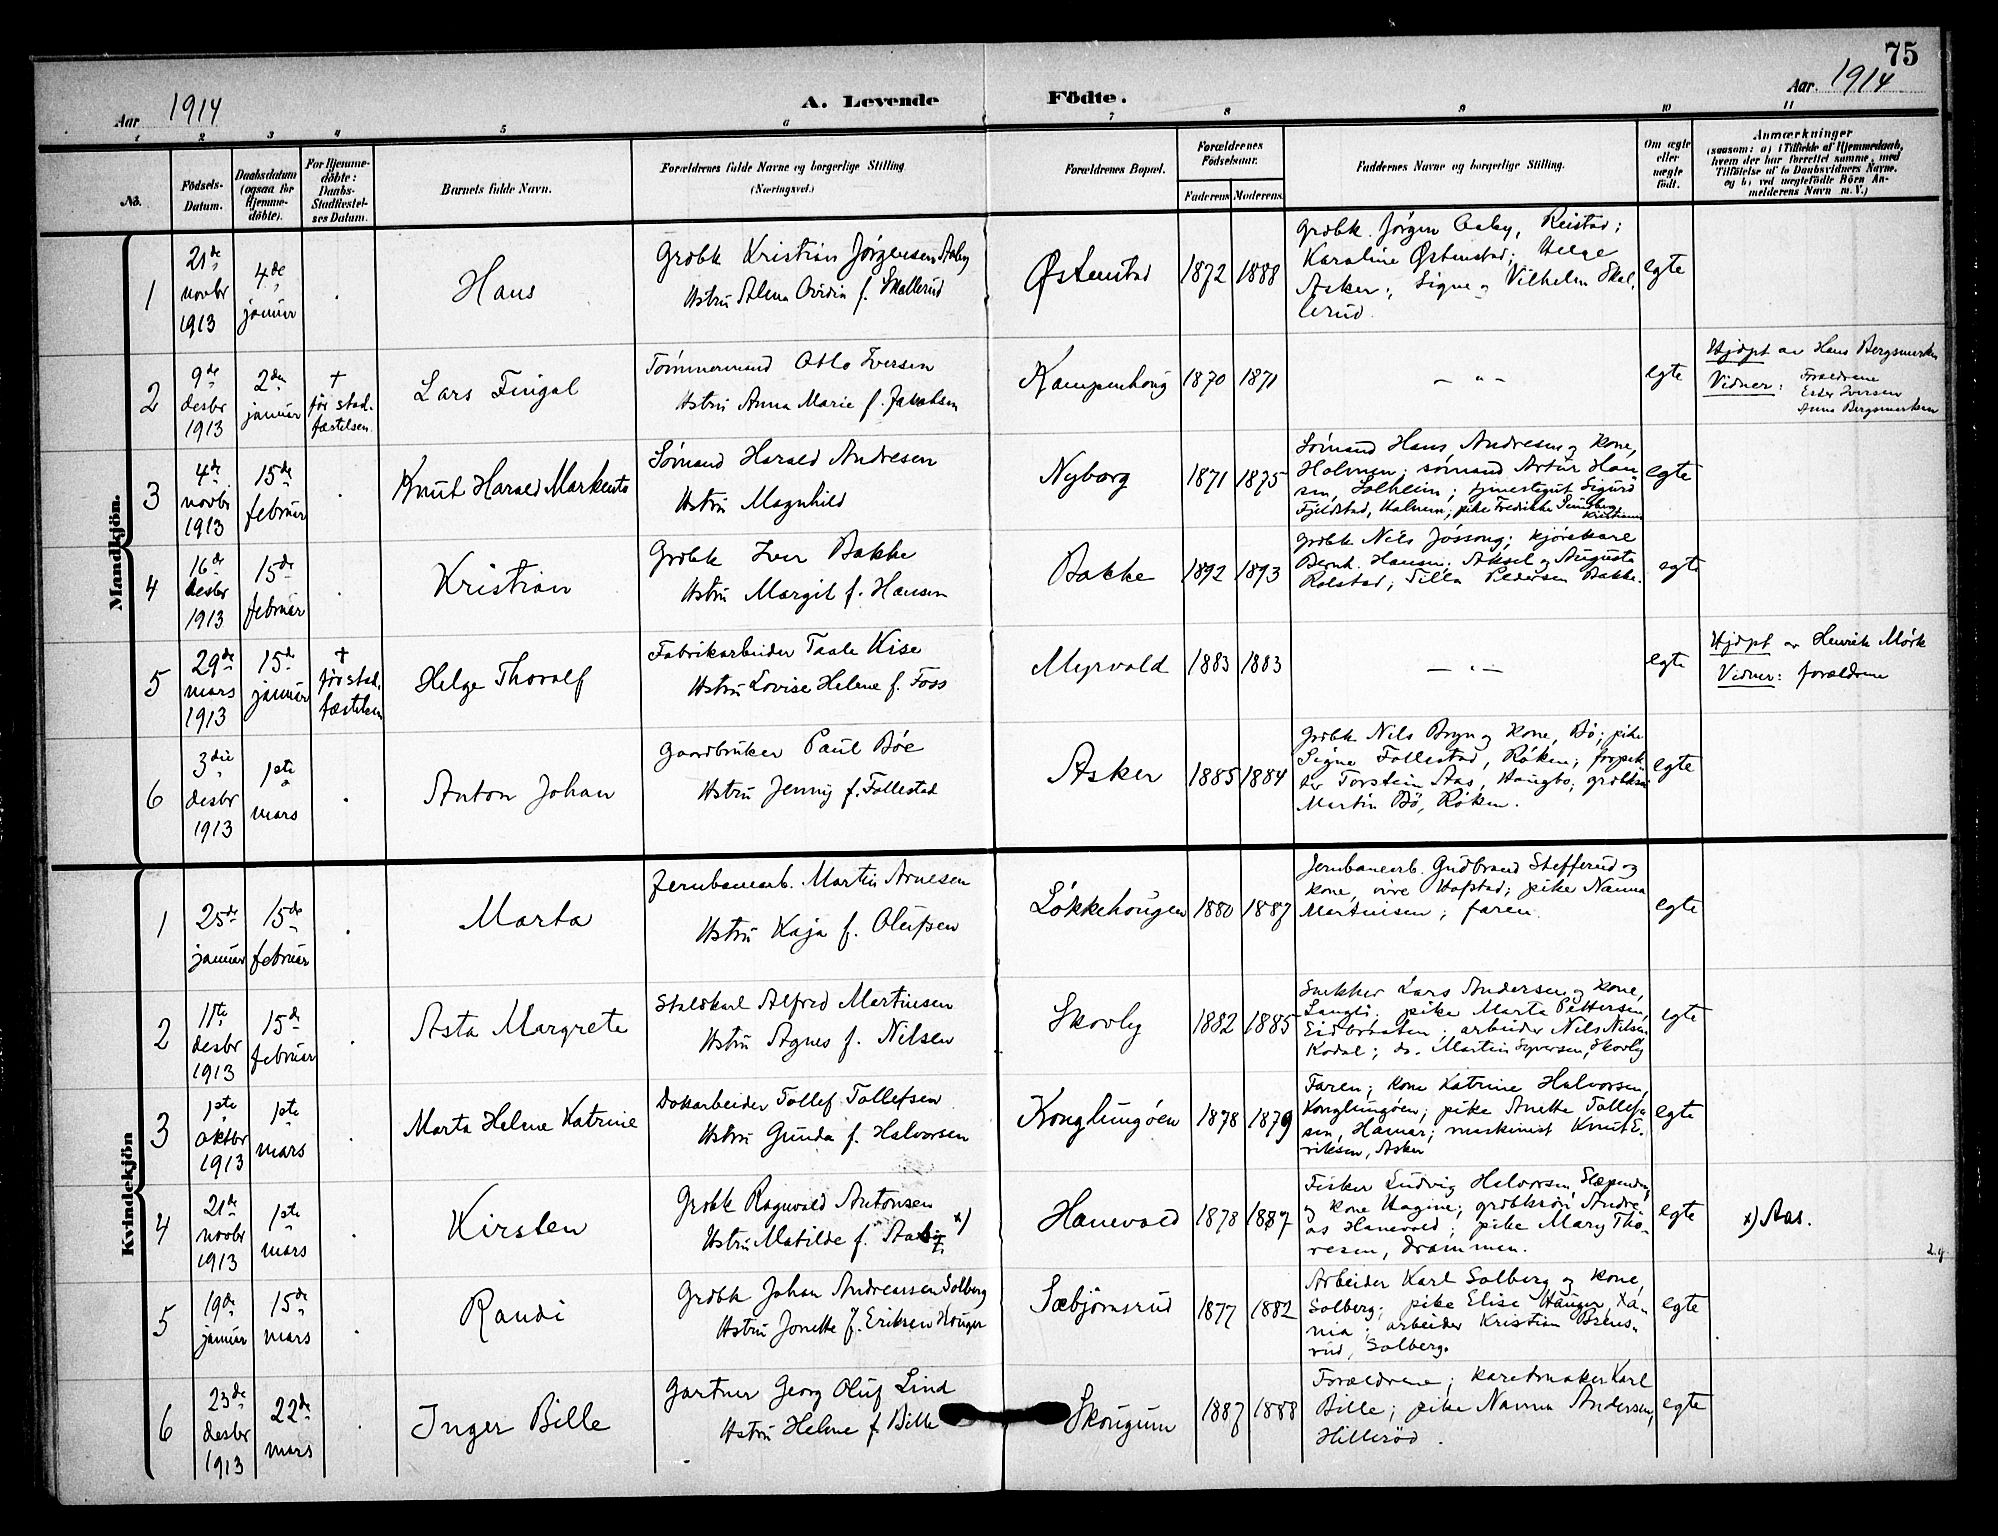 75
Aar 1914
A. Levende Födte.
Aar 1914
1 2 3 4 5 6 7 8 9 10 11
No.
Födsels-Datum.
Daabsdatum (ogsaa for Hjemme-döbte).
For Hjemme-döbte: Daabs-Stadfæstel-ses Datum.
Barnets fulde Navn.
Forældrenes fulde Navne og borgerlige Stilling
(Næringsvei.)
Forældrenes Bopæl.
Forældrenes Födselsaar.
Faderens Moderens
Faddernes Navne og borgerlige Stilling.
Om ægte eller uægte födt.
Anmærkninger
(saasom: a) i Tilfælde af Hjemmedaab,
hvem der har forrettet samme, med
Tilföielse af to Daabsvidners Navne,
og b) ved uægtefödte Börn An-
melderens Navn m. V.)
Mandkjön.
1
21de novbr 1913
4de januar
Hans
Grdbk Kristian Jørgensen Aaby
Hstru Alma f. Skallerud
Østenstad
1872 1888
Grdbk. Jørgen Aaby, Reistad;
Karoline Østenstad; Helge
Asker; Signe og Vilhelm Skal-
lerud.
egte
2
9de desbr 1913
2den januar
† før stad-fæstelsen.
Lars Fingal
Tømmermand Otto Iversen
Hstru Anna Marie f. Jakobsen
Kampenhoug
1870 1871
— " —
egte
Hjdpt av Hans Bergsmarken
Vidner: Forældrene
Ester Iversen
Anna Bergsmarken
3
4de novbr 1913
15de februar
Knut Harald Markento
Sømand Harald Andresen
Hstru Magnhild
Nyborg
1871 1875
Sømand Hans Andresen og kone,
Holmen; sømand Artur Han
sen, Solheim; Sigurd
Fjeldstad, Halnem; pike Fredrikke
egte
4
16de desbr 1913
15de februar
Kristian
Grdbk Iver Bakke
Hstru Margit f. Hansen
Bakke
1892 1893
Grdbk Nils Jøssong; kjørekarl
Bernh. Hansen; Aksel og Augusta
Rolstad; Tilla Pedersen Bakke.
egte
5
29de mars 1913
15de januar
† før stad-fæstelsen
Helge Thoralf
Fabrikarbeider Taale Kise
Hstru Lovise Helene f. Foss
Myrvold
1883 1883
— " —
egte
Hjdpt av Henrik Mørk
Vidner: forældrene
6
3die desbr 1913
1ste mars
Anton Johan
Gaardbruker Paul Bøe
Hstru Jenny f. Follestad
Asker
1885 1884
Grdbk Nils Bryn og kone, Bø; pike
Signe Follestad, Røken; forpak
ter Torstein Aas, Haugbo; grdbksøn
Martin Bø, Røken.
egte
Kvindekjön
1
25de januar
15de februar
Marta
Jernbanearb. Martin Arnesen
Hstru Kaja f. Olufsen
Løkkehougen
1880 1887
Jernbanearb. Gudbrand Stefferud og
kone, øvre Hofstad; pike Nanna
Martinsen; faren.
egte
2
11te desbr 1913
15de februar
Asta Margrete
Staldkarl Alfred Martinsen
Hstru Agnes f. Nilsen
Skovly
1882 1885
Snekker Lars Andersen og kone,
Langli; pike Marta Pettersen,
Eidbraaten; arbeider Nils Nilsen
Kodal; do. Martin Syversen, Skovly
egte
3
1ste oktbr 1913
1ste mars
Marta Helene Katrine
Dokarbeider Tollef Tollefsen
Hstru Gunda f. Halvorsen
Konglungøen
1878 1879
Faren; kone Katrine Halvorsen,
Konglungøen; pike Anette Tollef
sen, Hamar; maskinist Knut E-
riksen, Asker
egte
4
21de novbr 1913
1ste mars
Kirsten
Grdbk Ragnvald Antonsen
Hstru Matilde f. Aaby x)
Hanevold
1878 1887
Fisker Ludvig Halvorsen, Slæpenden,
og kone Hagine; grdbksøn Andre-
as Hanevold; pike Mary Tho-
resen, Drammen.
egte
x) Aas.
5
19de januar
15de mars
Randi
Grdbk Johan Andreassen Solberg
Hstru Jonette f. Eriksen Houger
Sæbjørnsrud
1877 1882
Arbeider Karl Solberg og kone,
Solberg; pike Elise Hauger, Xa-
nia; arbeider Kristian Brens-
rud, Solberg.
egte
6
23de desbr 1913
22de mars
Inger Bille
Gartner Georg Oluf Lind
Hstru Helene f. Bille
Skougum
1887 1888
Forældrene; karetmaker Karl
Bille; pike Nanna Andersen,
Hillerød.
egte